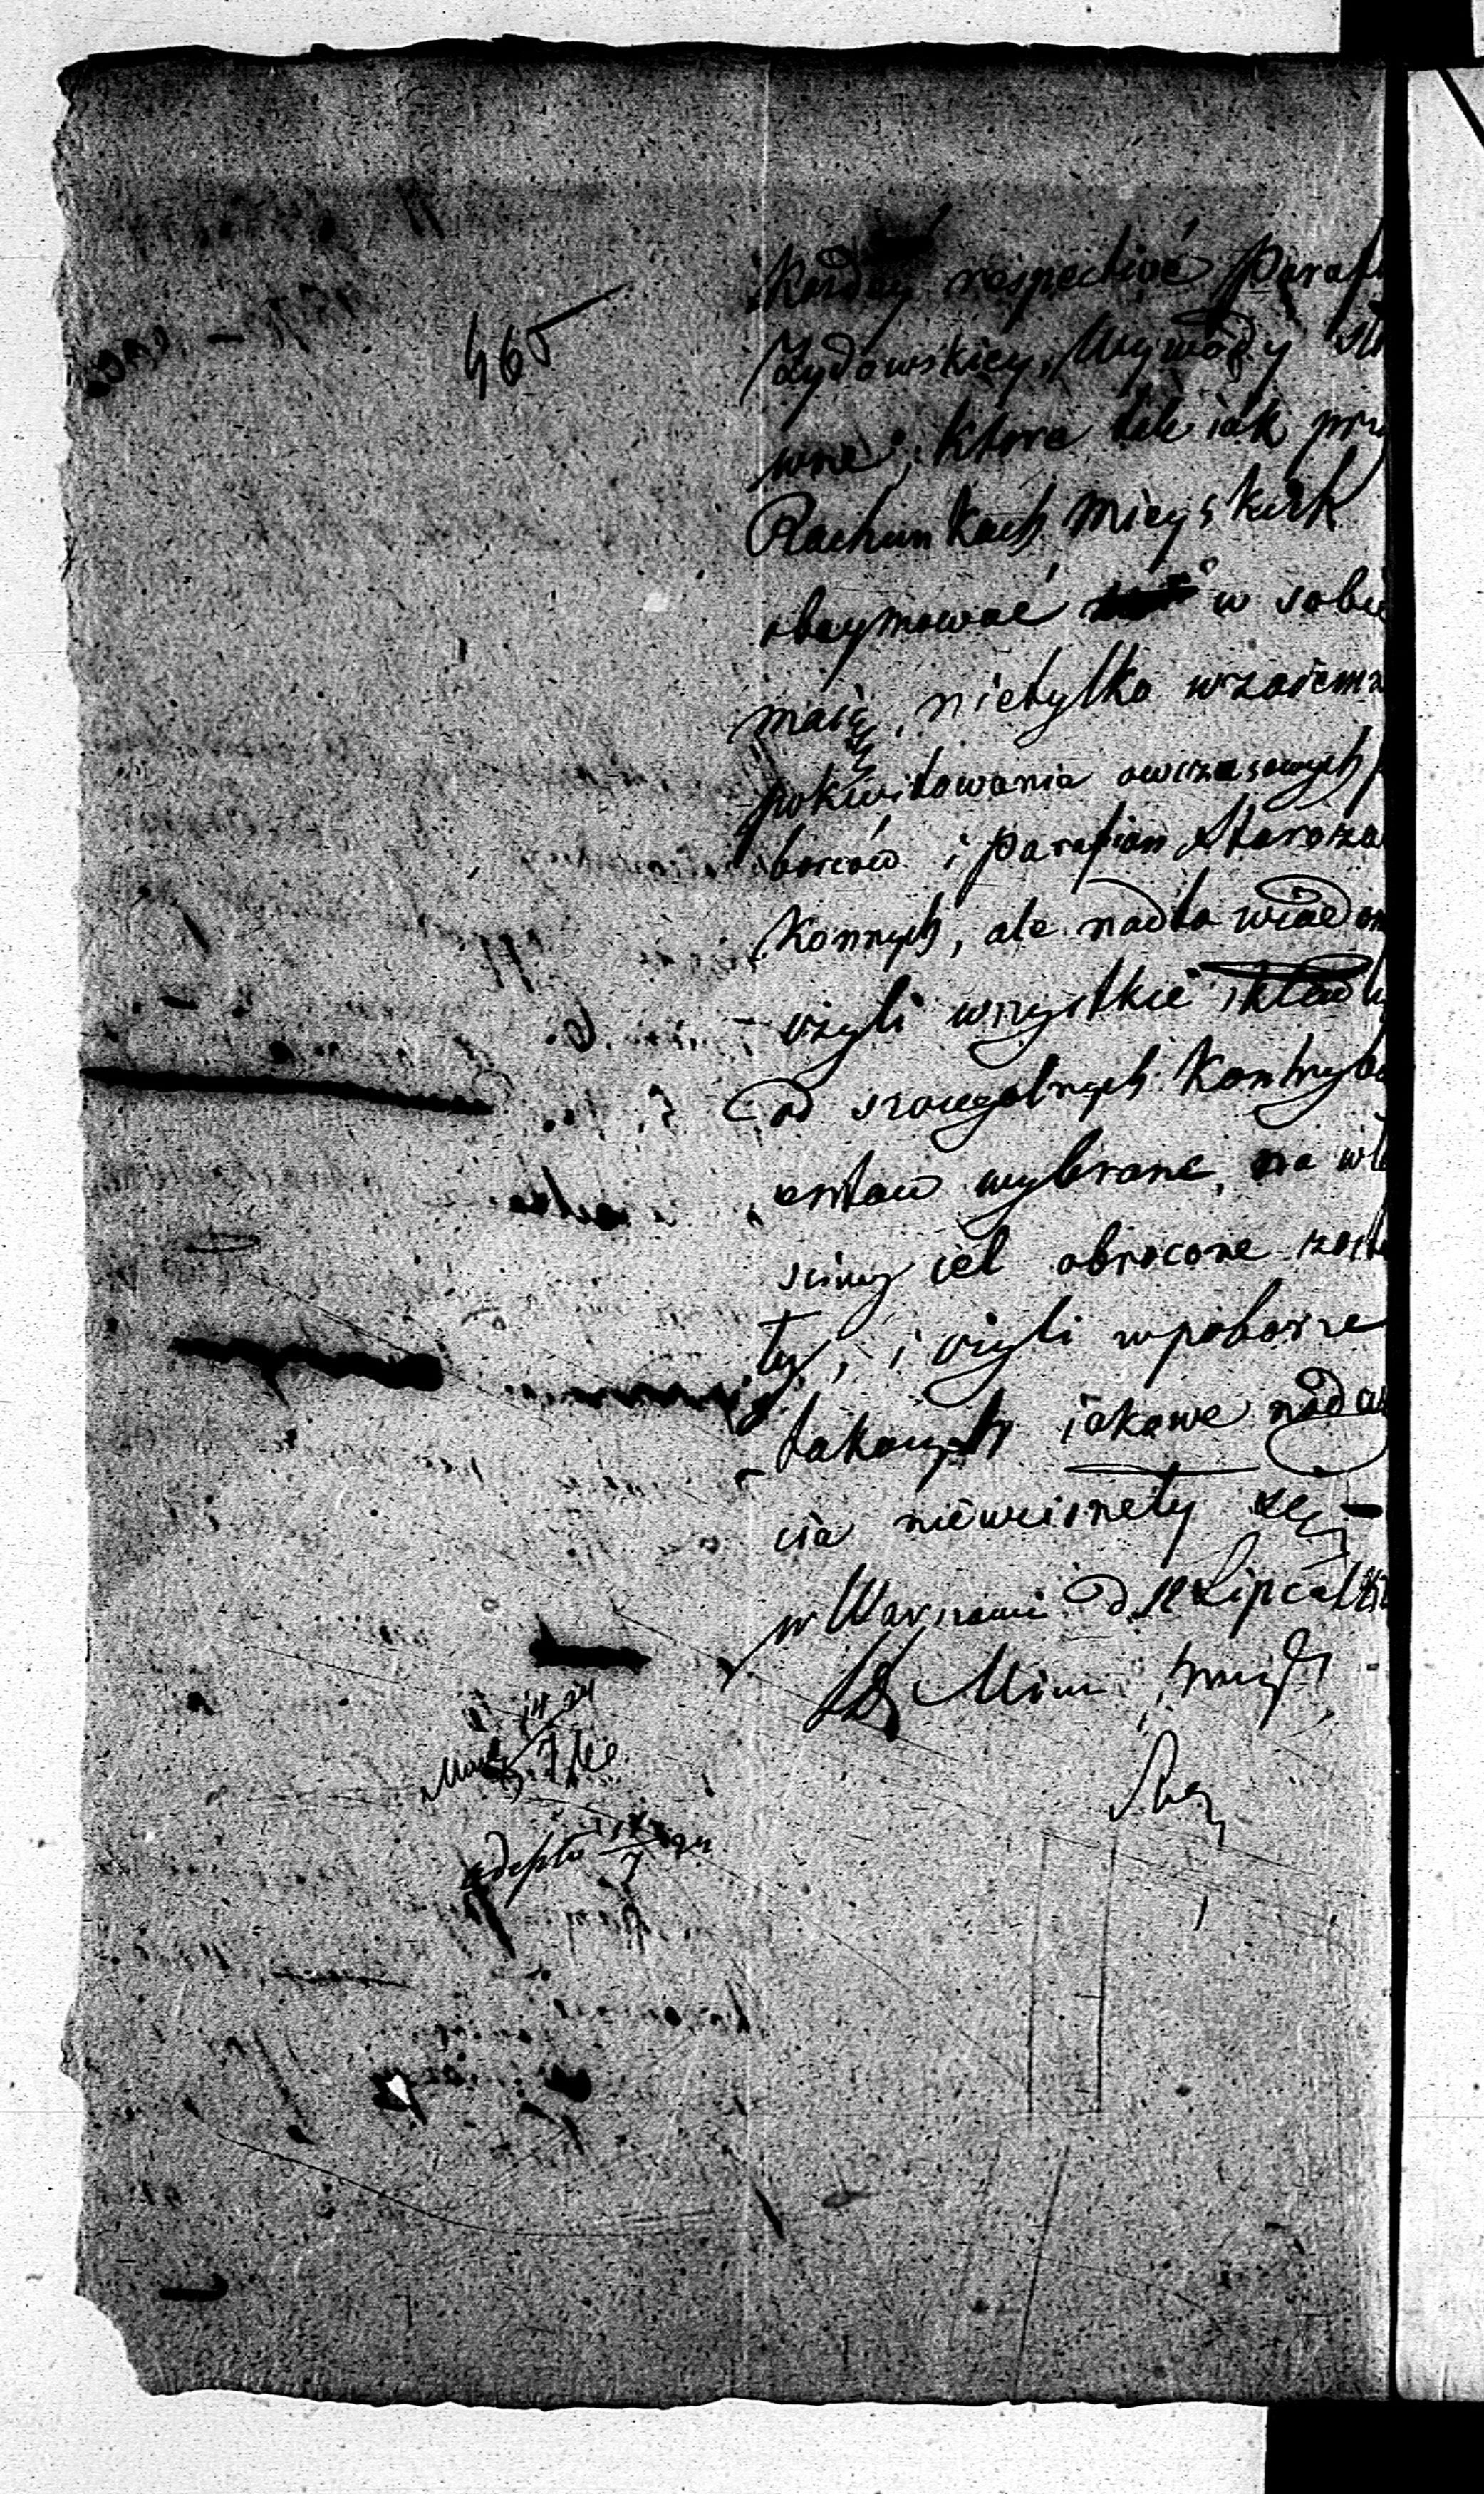 465
każdey respective Parafi
Żydowskiey, Wywody Sło
wne, ktore tak iak przy
Rachunkach Mieyskich
obeymować w sobie
maią, nietylko wzaiemne
pokwitowania owczasowych p
borców i parafian Staroza
konnych, ale nadto wiadom
czyli wszystkie składki
od szczegolnych Kontrybu
entow wybrane, na wła
sciwy cel obrocone zosta
ły, i czyli w poborze
takowych iakowe naduż
cia niewcisnęły się
w Warszawie d 12 Lipca
adepta